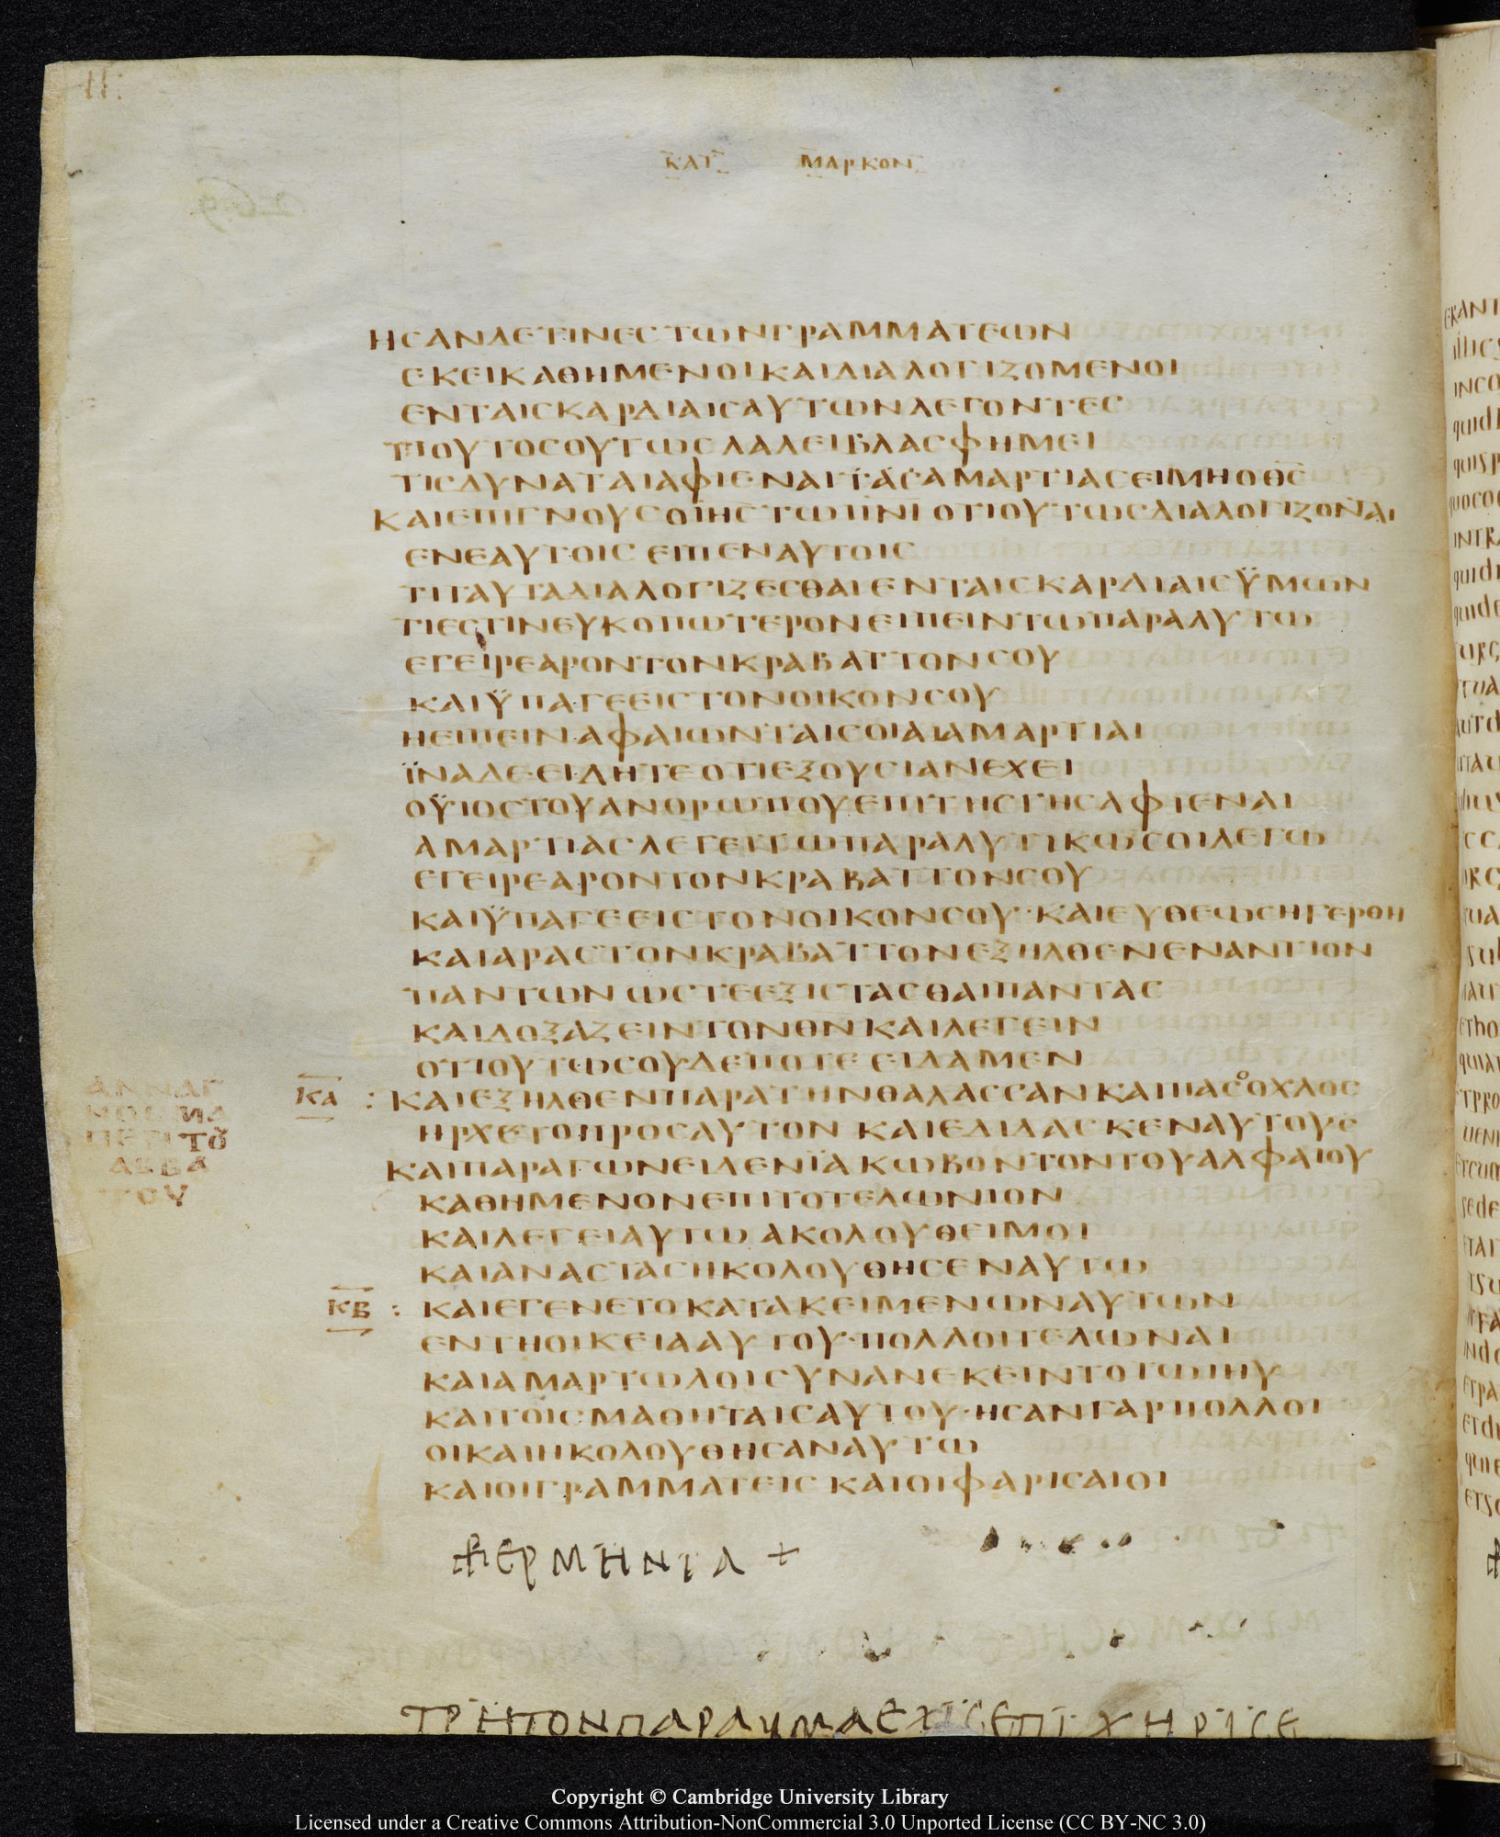 ΚΑΤ ΜΑΡΚΟΝ
ΗϹΑΝΔΕΤΙΝΕϹΤΩΝΓΡΑΜΜΑΤΕΩΝ
ΕΚΕΙΚΑΘΗΜΕΝΟΙΚΑΙΔΙΑΛΟΓΙΖΟΜΕΝΟΙ
ΕΝΤΑΙϹΚΑΡΔΙΑΙϹΑΥΤΩΝΛΕΓΟΝΤΕϹ
ΤΙΟΥΤΟϹΟΥΤΩϹΛΑΛΕΙΒΛΑϹΦΗΜΕΙ
ΤΙϹΔΥΝΑΤΑΙΑΦΙΕΝΑΙΤΑϹΑΜΑΡΤΙΑϹΕΙΜΗΟΘϹ
ΚΑΙΕΠΙΓΝΟΥϹΟΙΗϹΤΩΠΝΙΟΤΙΟΥΤΩϹΔΙΑΛΟΓΙΖΟΝΑΙ
ΕΝΕΑΥΤΟΙϹ ΕΙΠΕΝΑΥΤΟΙϹ
ΤΙΤΑΥΤΑΔΙΑΛΟΓΙΖΕϹΘΑΙΕΝΤΑΙϹΚΑΡΔΙΑΙϹΫΜΩΝ
ΤΙΕϹΤΙΝΕΥΚΟΠΩΤΕΡΟΝΕΙΠΕΙΝΤΩΠΑΡΑΛΥΤΩ
ΕΓΕΙΡΕΑΡΟΝΤΟΝΚΡΑΒΑΤΤΟΝϹΟΥ
ΚΑΙΫΠΑΓΕΕΙϹΤΟΝΟΙΚΟΝϹΟΥ
ΗΕΙΠΕΙΝΑΦΑΙΩΝΤΑΙϹΟΙΑΙΑΜΑΡΤΙΑΙ
ΪΝΑΔΕΕΙΔΗΤΕΟΤΙΕΞΟΥϹΙΑΝΕΧΕΙ
ΟΫΙΟϹΤΟΥΑΝΘΡΩΠΟΥΕΠΙΤΗϹΓΗϹΑΦΙΕΝΑΙ
ΑΜΑΡΤΙΑϹΛΕΓΕΙΤΩΠΑΡΑΛΥΤΙΚΩϹΟΙΛΕΓΩ
ΕΓΕΙΡΕΑΡΟΝΤΟΝΚΡΑΒΑΤΤΟΝϹΟΥ
ΚΑΙΫΠΑΓΕΕΙϹΤΟΝΟΙΚΟΝϹΟΥ·ΚΑΙΕΥΘΕΩϹΗΓΕΡΘΗ
ΚΑΙΑΡΑϹΤΟΝΚΡΑΒΑΤΤΟΝΕΞΗΛΘΕΝΕΝΑΝΤΙΟΝ
ΠΑΝΤΩΝ ΩϹΤΕΕΞΙϹΤΑϹΘΑΙΠΑΝΤΑϹ
ΚΑΙΔΟΞΑΖΕΙΝΤΟΝΘΝΚΑΙΛΕΓΕΙΝ
ΟΤΙΟΥΤΩϹΟΥΔΕΠΟΤΕ ΕΙΔΑΜΕΝ
ΚΑ : ΚΑΙΕΞΗΛΘΕΝΠΑΡΑΤΗΝΘΑΛΑϹϹΑΝΚΑΙΠΑϹΟΟΧΛΟϹ
ΗΡΧΕΤΟΠΡΟϹΑΥΤΟΝ ΚΑΙΕΔΙΔΑϹΚΕΝΑΥΤΟΥϹ
ΚΑΙΠΑΡΑΓΩΝΕΙΔΕΝΪΑΚΩΒΟΝΤΟΝΤΟΥΑΛΦΑΙΟΥ
ΚΑΘΗΜΕΝΟΝΕΠΙΤΟΤΕΛΩΝΙΟΝ
ΚΑΙΛΕΓΕΙΑΥΤΩ ΑΚΟΛΟΥΘΕΙΜΟΙ
ΚΑΙΑΝΑϹΤΑϹΗΚΟΛΟΥΘΗϹΕΝΑΥΤΩ
ΚΒ : ΚΑΙΕΓΕΝΕΤΟΚΑΤΑΚΕΙΜΕΝΩΝΑΥΤΩΝ
ΕΝΤΗΟΙΚΕΙΑΑΥΤΟΥ·ΠΟΛΛΟΙΤΕΛΩΝΑΙ
ΚΑΙΑΜΑΡΤΩΛΟΙϹΥΝΑΝΕΚΕΙΝΤΟΤΩΙΗΥ
ΚΑΙΤΟΙϹΜΑΘΗΤΑΙϹΑΥΤΟΥ·ΗϹΑΝΓΑΡΠΟΛΛΟΙ
ΟΙΚΑΙΗΚΟΛΟΥΘΗϹΑΝΑΥΤΩ
ΚΑΙΟΙΓΡΑΜΜΑΤΕΙϹ ΚΑΙΟΙΦΑΡΙϹΑΙΟΙ
ΕΡΜΗΝΙΑ +
ΤΡΗΤΟΝΠΑΡΑΥΜΑΕΧΙϹΕΠΙΧΗΡΙϹΕ
Copyright © Cambridge University Library
Licensed under a Creative Commons Attribution-NonCommercial 3.0 Unported License (CC BY-NC 3.0)